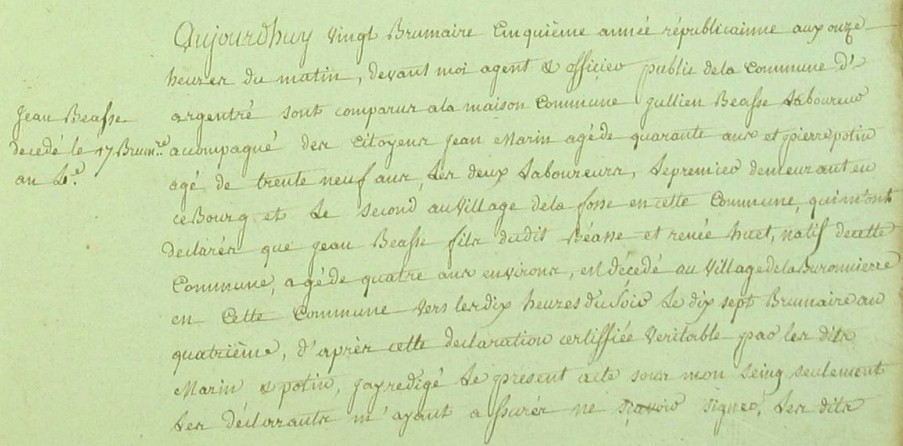 Jean Beasse
decedé le 17 Brum.re
an 4.e
Aujourdhuy vingt Brumaire Cinquième année républicainne aux onze
heures du matin, devant moi agent & officier public dela Commune d'
argentré sont comparus ala maison Commune jullien Beasse Laboureur
acompagné des Citoyens Jean Marin agé de quarante ans et pierre potin
agé de trente neuf ans, les deux Laboureurs, le premier demeurant en
ce Bourg et le second au village dela fosse en cette Commune, qui m'ont
declarés que Jean Beasse fils dudit Béasse et renée huet, natif de cette
Commune, agé de quatre ans environs, est décedé au village dela Buronnierre
en Cette Commune vers les dix heures du Soir le dix sept Brumaire an
quatrième, d'après cette declaration certiffiée veritable par les dits
Marin & potin, jay redigé le present acte sous mon seing seulement
les déclarants m'ayant assurés ne sçavoir signer, les dits